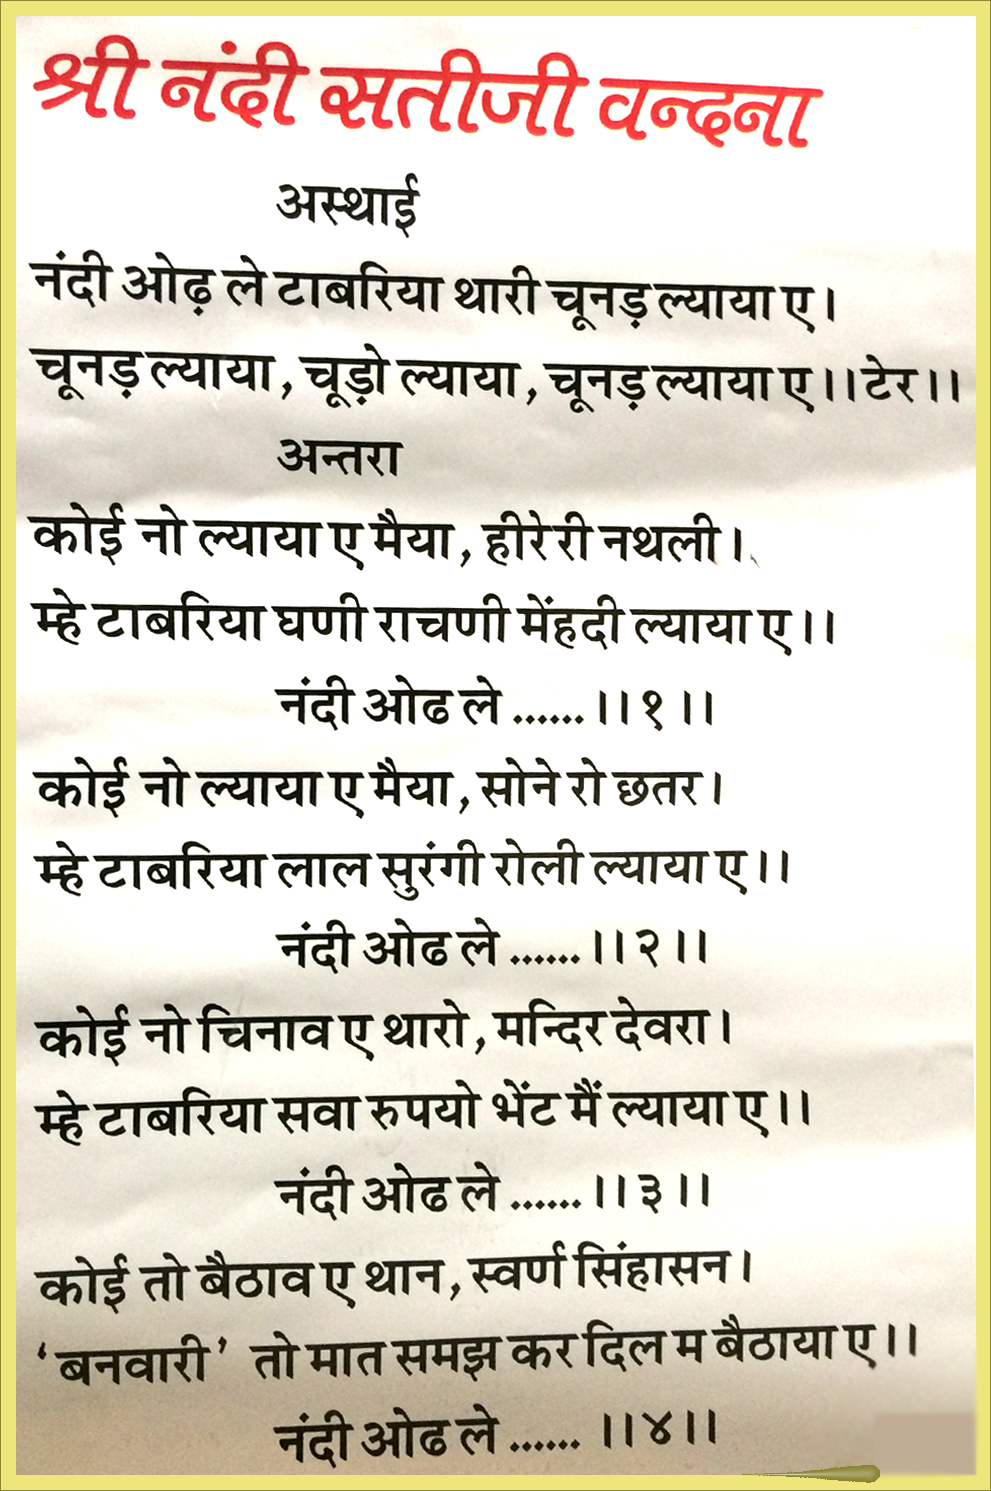 श्री नंदी सतीजी वन्दना
अस्थाई
नंदी ओढ़ ले टाबरिया थारी चूनड़ ल्याया ए।
चूनड़ ल्याया, चूड़ो ल्याया, चूनड़ ल्याया ए।।टेर।।
अन्तरा
कोई नो ल्याया ए मैया, हीरे री नथली।
म्हे टाबरिया घणी राचणी मेंहदी ल्याया ए।।
नंदी ओढ ले ......।।१।।
कोई नो ल्याया ए मैया, सोने रो छतर।
म्हे टाबरिया लाल सुरंगी रोली ल्याया ए।।
नंदी ओढ ले ......।।२।।
कोई नो चिनाव ए थारो, मन्दिर देवरा।
म्हे टाबरिया सवा रुपयो भेंट मैं ल्याया ए।।
नंदी ओढ ले ......।।३।।
कोई तो बैठाव ए थान, स्वर्ण सिंहासन।
‘बनवारी’ तो मात समझ कर दिल म बैठाया ए।।
नंदी ओढ ले ...... ।।४।।